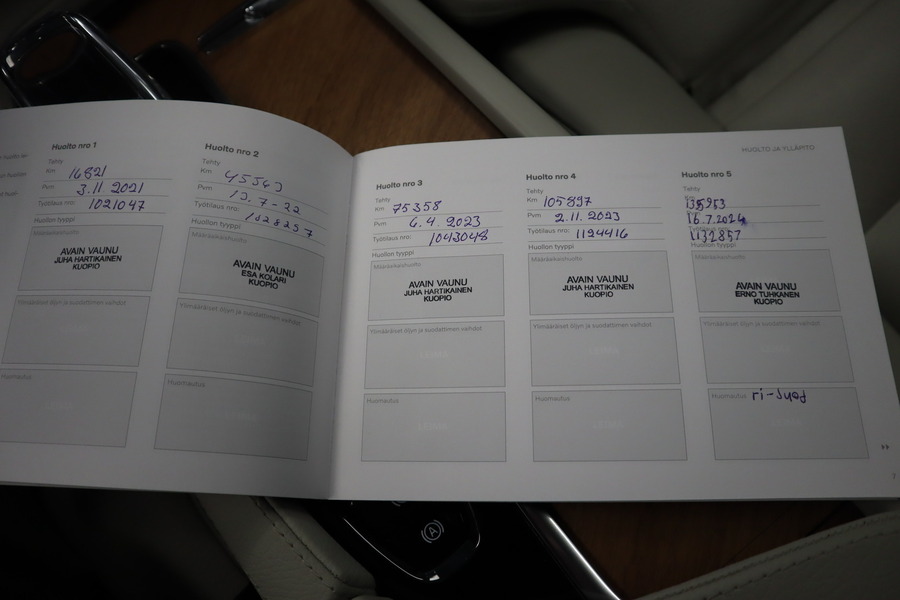 Huolto nro 1
Tehty
Km 16821
Pvm 3.11 2021
Työtilaus nro: 1021047
Huollon tyyppi
Määräaikaishuolto
AVAIN VAUNU
JUHA HARTIKAINEN
KUOPIO
Ylimääräiset öljyn ja suodattimen vaihdot
Huomautus
Huolto nro 2
Tehty
Km 45563
Pvm 13.7-22
Työtilaus nro: 1028257
Huollon tyyppi
Määräaikaishuolto
AVAIN VAUNU
ESA KOLARI
KUOPIO
Ylimääräiset öljyn ja suodattimen vaihdot
Huomautus
Huolto nro 3
Tehty
Km 75358
Pvm 6.4.2023
Työtilaus nro: 1043048
Huollon tyyppi
Määräaikaishuolto
AVAIN VAUNU
JUHA HARTIKAINEN
KUOPIO
Ylimääräiset öljyn ja suodattimen vaihdot
Huomautus
HUOLTO JA YLLÄPITO
Huolto nro 4
Tehty
Km 105897
Pvm 2.11.2023
Työtilaus nro: 1124416
Huollon tyyppi
Määräaikaishuolto
AVAIN VAUNU
JUHA HARTIKAINEN
KUOPIO
Ylimääräiset öljyn ja suodattimen vaihdot
Huomautus
Huolto nro 5
Tehty
135953
16.7.2024
1132857
Huollon tyyppi
Määräaikaishuolto
AVAIN VAUNU
ERNO TUHKANEN
KUOPIO
Ylimääräiset öljyn ja suodattimen vaihdot
Huomautus
7
A